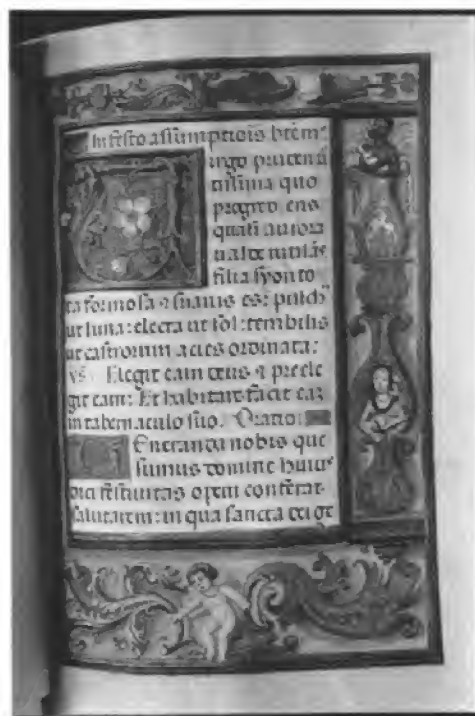 In festo assumptiois btē m̄
irgo prudentissima quo
tissima quo
progrederis
quasi aurora
ualde rutilās
filia syon to
ta formosa ⁊ suauis es: pulch
ut luna: electa ut sol: terribilis
ut castrorum acies ordinata:
Vs. Elegit eam deus ⁊ preele
git eam: Et habitare facit eaz
in tabernaculo suo. Oratio:
Eneranda nobis que
sumus domine huius
diei festiuitas opem conferat
salutarem: in qua sancta dei ge